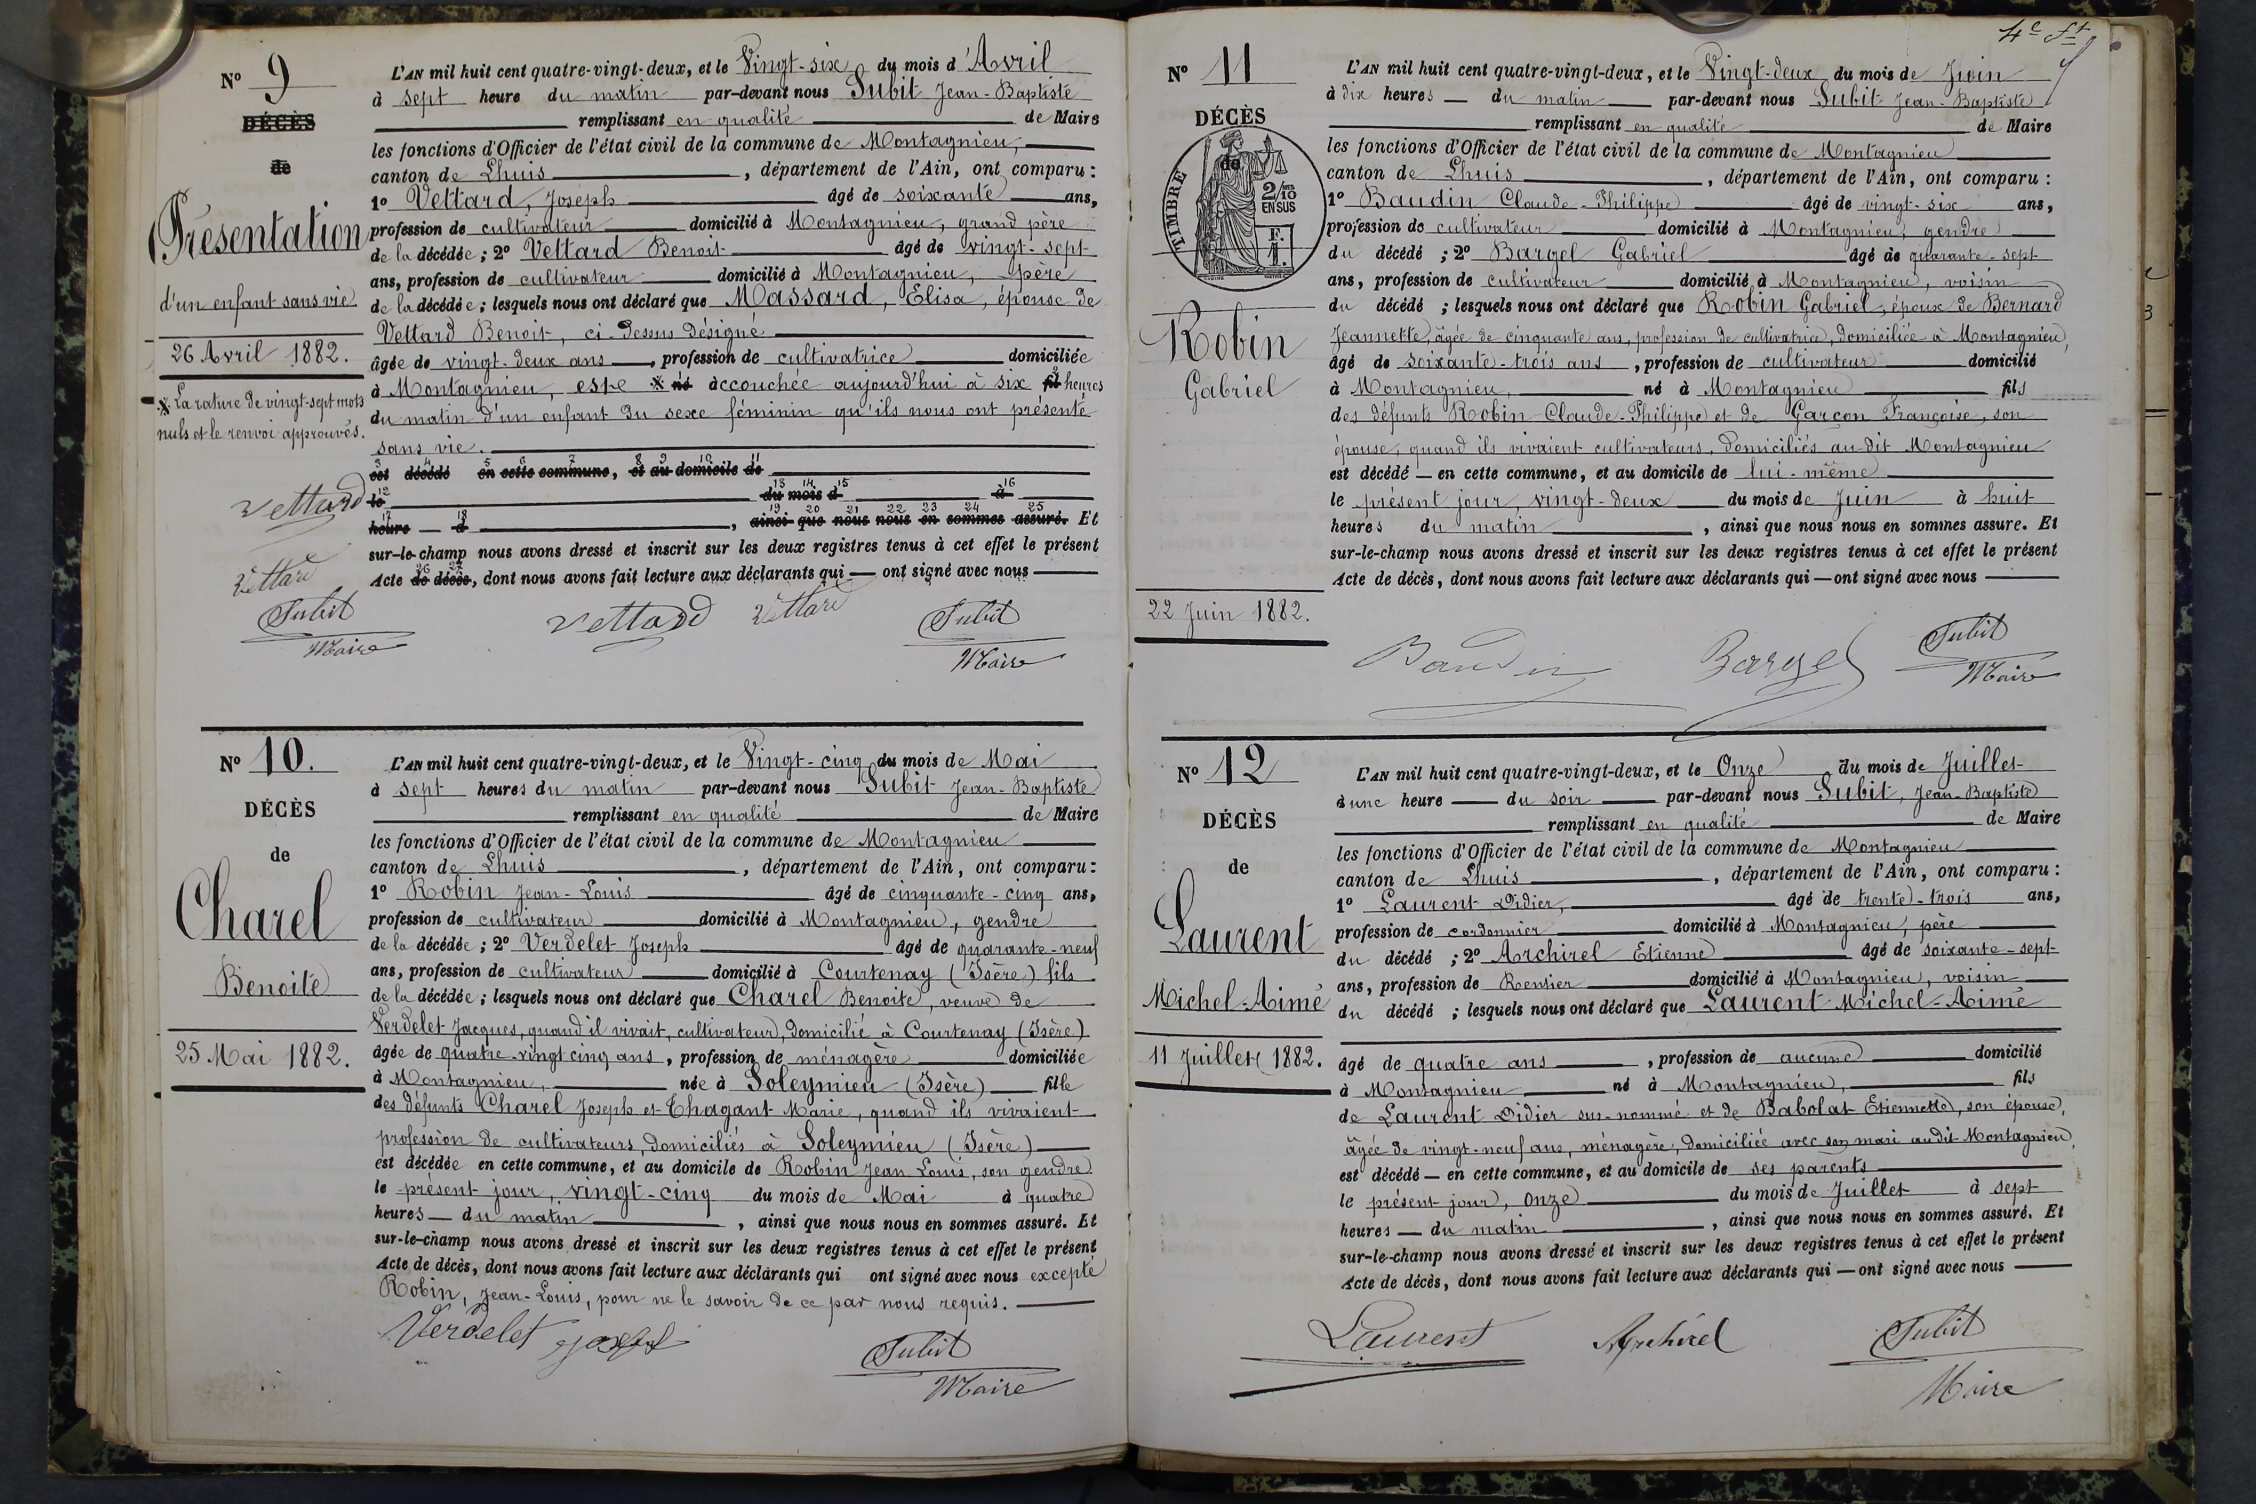 Nº 9
DÉCÈS
de
Présentation
d'un enfant sans vie.
26 Avril 1882.
X La rature de vingt-sept mots
nuls et le renvoi approuvés.
Vettard
Vettard
Subit
Maire
L'AN mil huit cent quatre-vingt-deux, et le Vingt-six du mois d'Avril
à sept heure du matin par-devant nous Subit Jean-Baptiste
remplissant en qualité de Maire
les fonctions d'Officier de l'état civil de la commune de Montagnieu,
canton de Lhuis, département de l'Ain, ont comparu :
1º Vettard, Joseph âgé de soixante ans,
profession de cultivateur domicilié à Montagnieu, grand père
de la décédée ; 2º Vettard Benoit âgé de vingt-sept
ans, profession de cultivateur domicilié à Montagnieu, père
de la décédée ; lesquels nous ont déclaré que Massard, Elisa, épouse de
Vettard Benoit, ci-dessus désigné
âgée de vingt-deux ans, profession de cultivatrice domiciliée
à Montagnieu, est X né accouchée aujourd'hui à six fil heures
du matin d'un enfant du sexe féminin qu'ils nous ont présenté
sans vie.
3 4 5 6 7 8 9 10 11
est décédé en cette commune, et au domicile de
12 13 14 15 16
le du mois d à
17 18 19 20 21 22 23 24 25
heure d, ainsi que nous nous en sommes assuré. Et
sur-le-champ nous avons dressé et inscrit sur les deux registres tenus à cet effet le présent
26 27
Acte de décès, dont nous avons fait lecture aux déclarants qui — ont signé avec nous
Vettard Vettard Subit
Maire
Nº 10.
DÉCÈS
de
Charel
Benoite
25 Mai 1882.
L'AN mil huit cent quatre-vingt-deux, et le Vingt-cinq du mois de Mai
à sept heures du matin par-devant nous Subit Jean-Baptiste
remplissant en qualité de Maire
les fonctions d'Officier de l'état civil de la commune de Montagnieu
canton de Lhuis, département de l'Ain, ont comparu :
1º Robin Jean-Louis âgé de cinquante-cinq ans,
profession de cultivateur domicilié à Montagnieu, gendre
de la décédée ; 2º Verdelet Joseph âgé de quarante-neuf
ans, profession de cultivateur domicilié à Courtenay (Isère) fils
de la décédée ; lesquels nous ont déclaré que Charel Benoite, veuve de
Verdelet Jacques, quand il vivait, cultivateur, domicilié à Courtenay (Isère)
âgée de quatre-vingt cinq ans, profession de ménagère domiciliée
à Montagnieu, née à Soleymieu (Isère) fille
des défunts Charel Joseph et Chagant Marie, quand ils vivaient
profession de cultivateurs, domiciliés à Soleymieu (Isère)
est décédée en cette commune, et au domicile de Robin Jean Louis, son gendre
le présent jour, vingt-cinq du mois de Mai à quatre
heures — du matin, ainsi que nous nous en sommes assuré. Et
sur-le-champ nous avons dressé et inscrit sur les deux registres tenus à cet effet le présent
Acte de décès, dont nous avons fait lecture aux déclarants qui ont signé avec nous excepté
Robin, Jean-Louis, pour ne le savoir de ce par nous requis.
Verdelet joseph Subit
Maire
4e ft
Nº 11
DÉCÈS
de
TIMBRE
2/10
EN SUS
F.
1.
Robin
Gabriel
22 Juin 1882.
L'AN mil huit cent quatre-vingt-deux, et le Vingt-deux du mois de Juin
à dix heures — du matin par-devant nous Subit Jean-Baptiste
remplissant en qualité de Maire
les fonctions d'Officier de l'état civil de la commune de Montagnieu
canton de Lhuis, département de l'Ain, ont comparu :
1º Baudin Claude-Philippe âgé de vingt-six ans,
profession de cultivateur domicilié à Montagnieu, gendre
du décédé ; 2º Bargel Gabriel âgé de quarante-sept
ans, profession de cultivateur domicilié à Montagnieu, voisin
du décédé ; lesquels nous ont déclaré que Robin Gabriel, époux de Bernard
Jeannette, âgée de cinquante ans, profession de cultivatrice, domiciliée à Montagnieu,
âgé de soixante-trois ans, profession de cultivateur domicilié
à Montagnieu, né à Montagnieu fils
des défunts Robin Claude-Philippe et de Garçon Françoise, son
épouse, quand ils vivaient cultivateurs, domiciliés au dit Montagnieu
est décédé — en cette commune, et au domicile de lui-même
le présent jour, vingt-deux du mois de Juin à huit
heures du matin, ainsi que nous nous en sommes assuré. Et
sur-le-champ nous avons dressé et inscrit sur les deux registres tenus à cet effet le présent
Acte de décès, dont nous avons fait lecture aux déclarants qui — ont signé avec nous
Baudin Bargel Subit
Maire
Nº 12
DÉCÈS
de
Laurent
Michel-Aimé
11 Juillet 1882.
L'AN mil huit cent quatre-vingt-deux, et le Onze du mois de Juillet
à une heure — du soir par-devant nous Subit, Jean-Baptiste
remplissant en qualité de Maire
les fonctions d'Officier de l'état civil de la commune de Montagnieu
canton de Lhuis, département de l'Ain, ont comparu :
1º Laurent Didier, âgé de trente-trois ans,
profession de cordonnier domicilié à Montagnieu, père
du décédé ; 2º Archirel Etienne âgé de soixante-sept
ans, profession de Rentier domicilié à Montagnieu, voisin
du décédé ; lesquels nous ont déclaré que Laurent Michel-Aimé
âgé de quatre ans, profession de aucune domicilié
à Montagnieu né à Montagnieu, fils
de Laurent Didier sus-nommé et de Babolat Etiennette, son épouse,
âgée de vingt-neuf ans, ménagère, domiciliée avec son mari audit Montagnieu,
est décédé — en cette commune, et au domicile de ses parents
le présent jour, onze du mois de Juillet à sept
heures — du matin, ainsi que nous nous en sommes assuré. Et
sur-le-champ nous avons dressé et inscrit sur les deux registres tenus à cet effet le présent
Acte de décès, dont nous avons fait lecture aux déclarants qui — ont signé avec nous
Laurent Archirel Subit
Maire